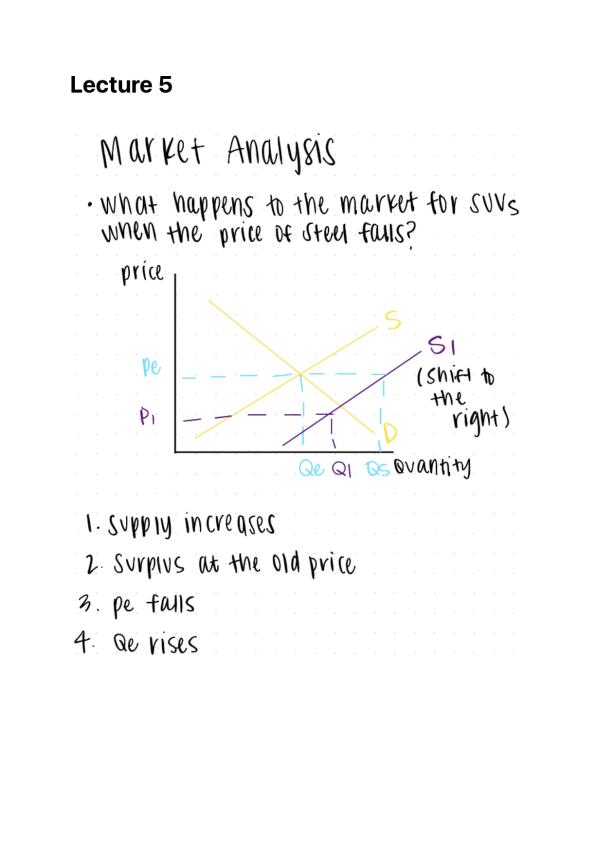 Lecture 5
Market Analysis
• What happens to the market for SUVs
when the price of steel falls?
price
S
S1
Pe
(shift to
the
right)
P1
D
Qe Q1 Qs Quantity
1. Supply increases
2. Surplus at the old price
3. Pe falls
4. Qe rises